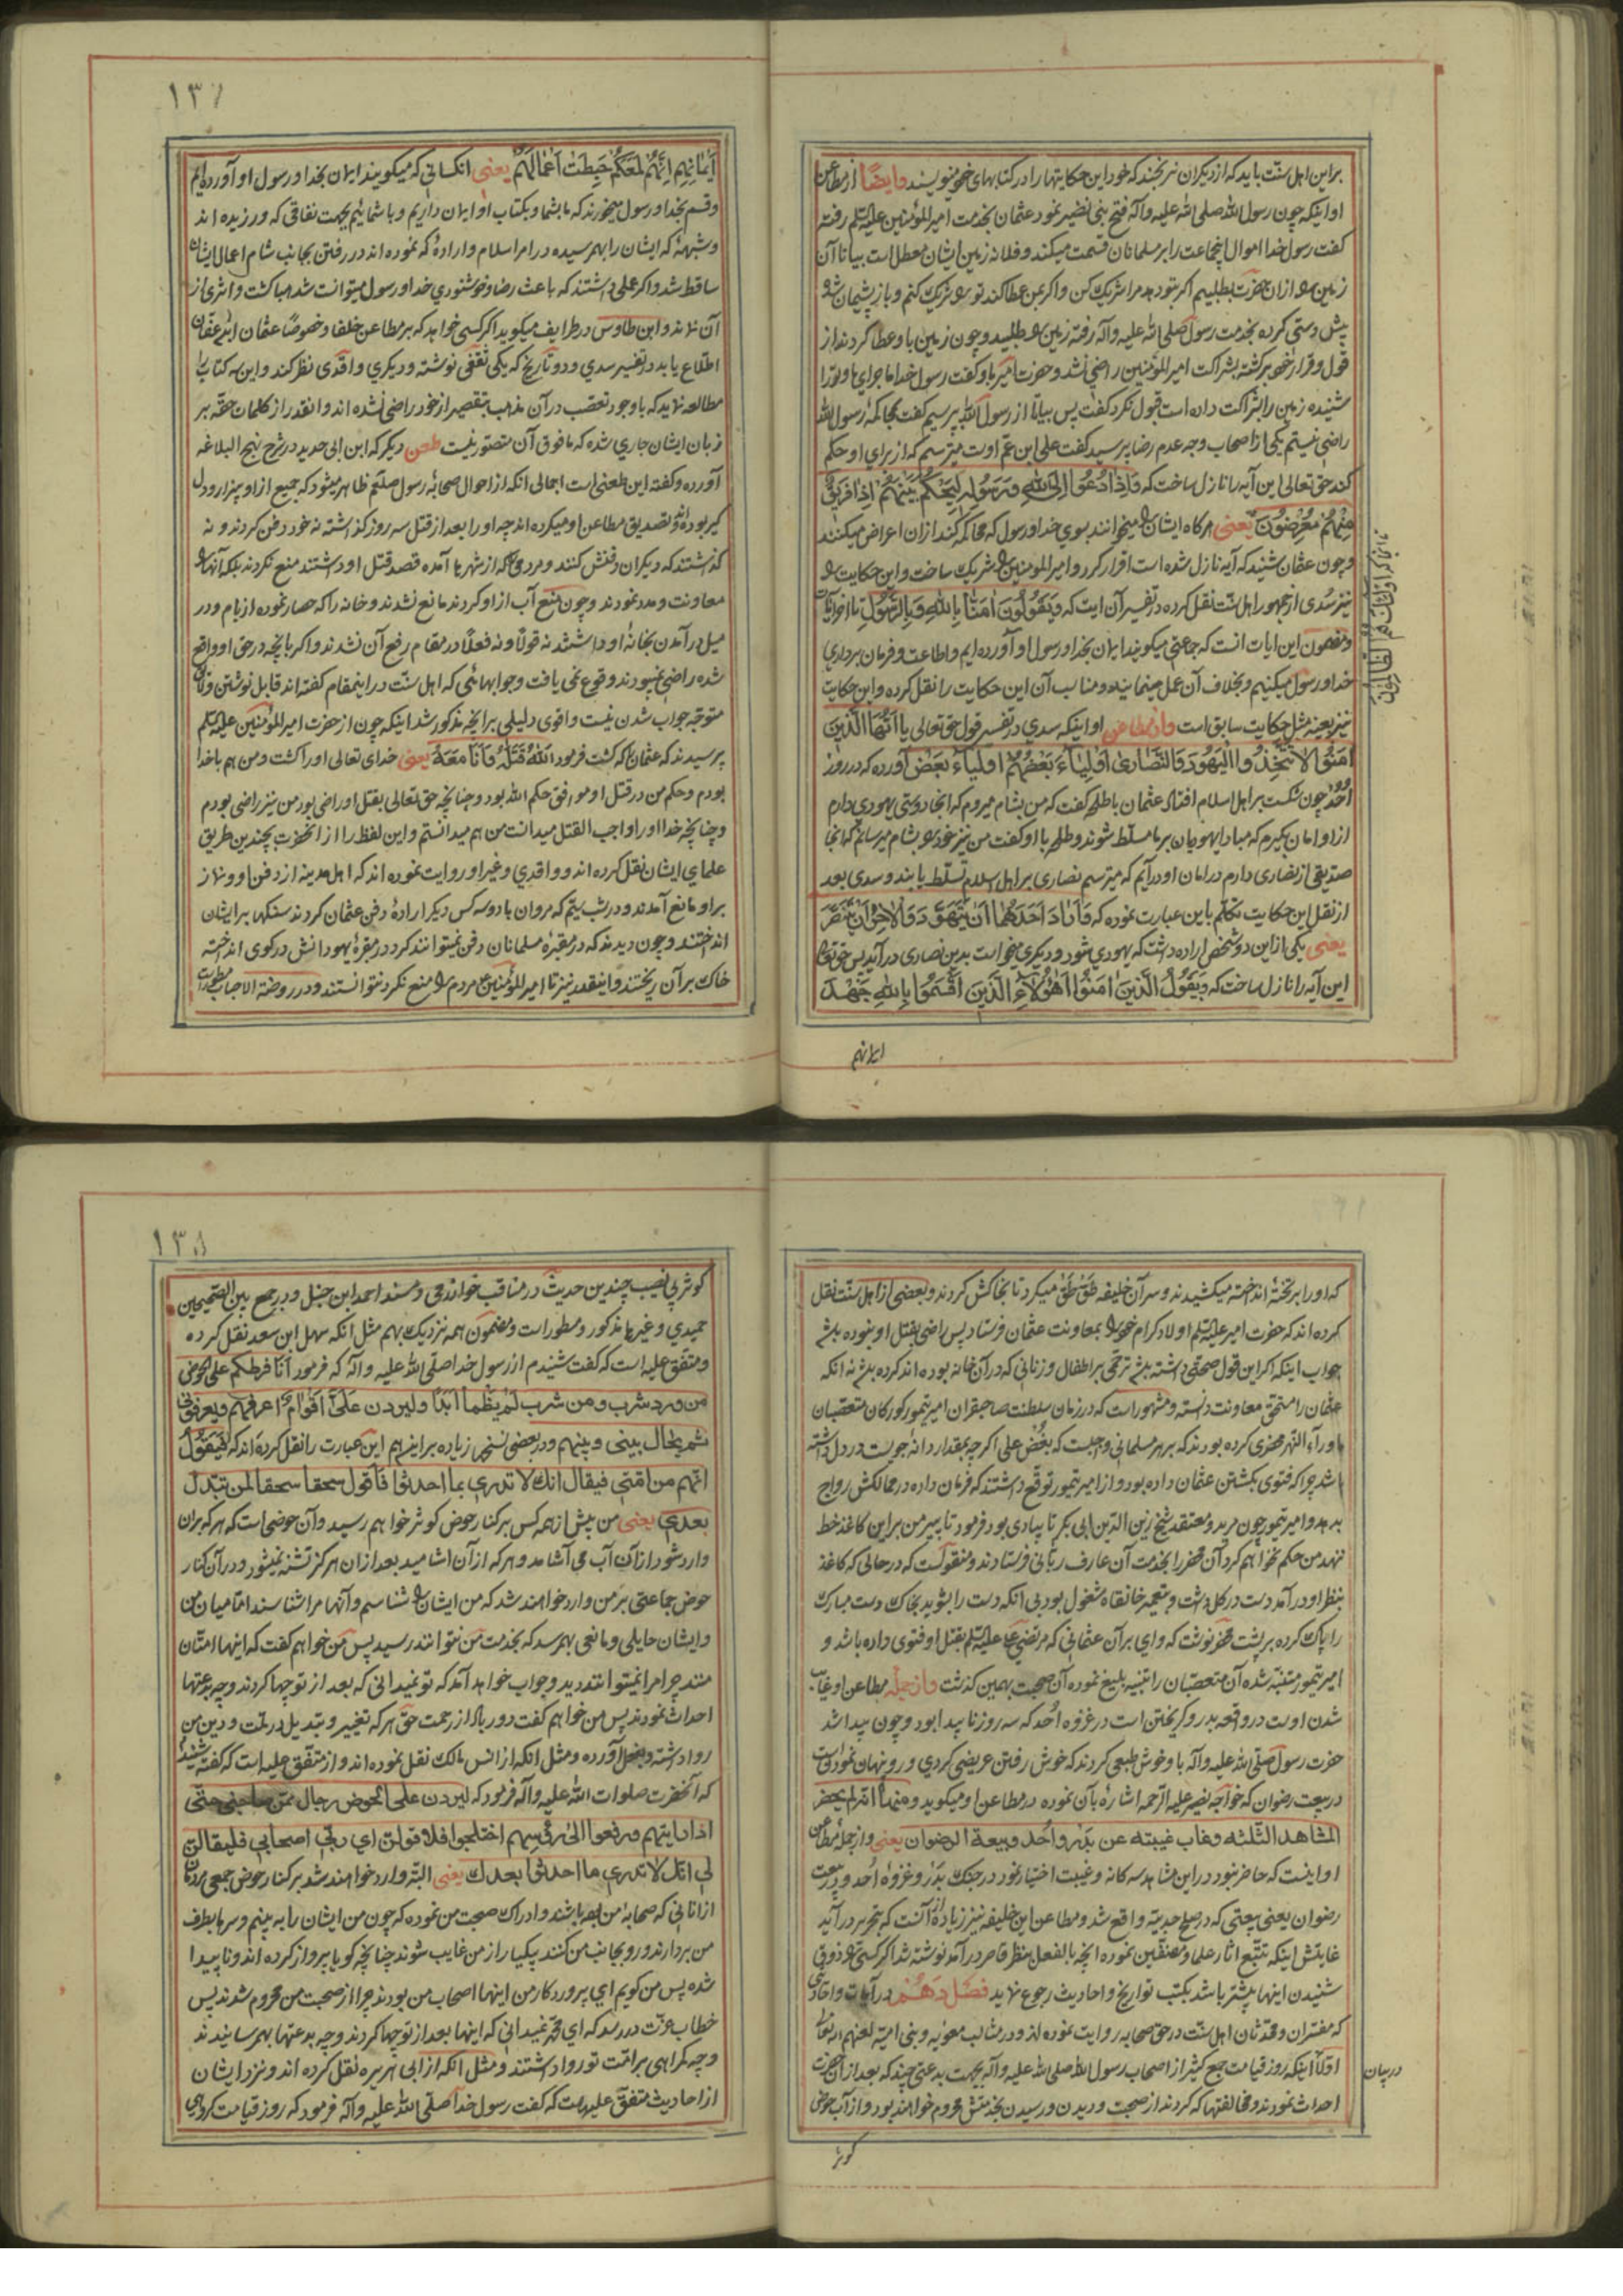 براین اهل سنّت باید که از دیکران نرنجند که خود این حکایتها را در کتابهای خود مینویسند وایضًا از مطاعن
او اینکه چون رسول الله صلی الله علیه وآله فتح بنی نضیر نمود عثمان بخدمت امیرالمؤمنین علیه السلم رفته
کفت رسول خدا اموال اینجماعت را بر مسلمانان قسمت میکند و فلانه زمین ایشان معطل است بیا تا آن
زمین را از ان حضرت بطلبیم اکر بتو دهد مرا شریک کن و اکر بمن عطا کند تو را شریک کنم و باز پشیمان شد
پیش دستی کرده بخدمت رسول صلی الله علیه وآله رفته زمین را طلبید و چون زمین باو عطا کردند از
قول و قرار خود برکشته بشراکت امیرالمؤمنین راضی نشد و حضرت امیر باو کفت رسول خدا ماجرای ما و تو را
شنیده زمین را بشراکت داده است قبول نکرد کفت پس بیا تا از رسول الله بپرسیم کفت بمحاکمهٔ رسول الله
راضی نیستم یکی از اصحاب وجه عدم رضا پرسید کفت علی ابن عم اوست میترسم که از برای او حکم
کند حق تعالی این آیه را نازل ساخت که وَاِذَا دُعُوا اِلَى اللهِ وَرَسُولِهِ لِيَحْكُمَ بَيْنَهُمْ اِذَا فَرِيقٌ
مِنْهُمْ مُعْرِضُونَ یعنی هرکاه ایشان را میخوانند بسوی خدا و رسول که محاکمه کنند از ان اعراض میکنند
و چون عثمان شنید که آیه نازل شده است اقرار کرد و امیرالمومنین را شریک ساخت و این حکایت را
نیز سُدی از جمهور اهل سنّت نقل کرده در تفسیر آن ایت که وَيَقُولُونَ اٰمَنَّا بِاللهِ وَبِالرَّسُولِ تا اخر آیات
و مضمون این ایات انست که جماعتی میکویند ایمان بخدا و رسول او آورده ایم و اطاعت و فرمان برداری
خدا و رسول میکنیم و بخلاف آن عمل مینمایند و مناسب آن این حکایت را نقل کرده و این حکایت
نیز بعینه مثل حکایت سابق است واز مطاعن او اینکه سدی در تفسیر قول حق تعالی یا اَیُّهَا الَّذِینَ
اٰمَنُوا لَا تَتَّخِذُوا الْيَهُودَ وَالنَّصَارٰى اَوْلِيَاءَ بَعْضُهُمْ اَوْلِيَاءُ بَعْضٍ آورده که در روز
اُحُد چون شکست بر اهل اسلام افتاد عثمان با طلحه کفت که من بشام میروم که انجا دوستی یهودی دارم
از او امان بکیرم که مبادا یهودیان بر ما مسلّط شوند و طلحه با او کفت من نیز خود را بشام میرسانم که انجا
صدیقی از نصاری دارم در امان او درآیم که میترسم نصاری بر اهل اسلام تسلّط یابند و سدی بعد
از نقل این حکایت تکلّم باین عبارت نموده که فَاَرَادَ اَحَدُهُمَا اَنْ یَتَهَوَّدَ وَالْاٰخَرُ اَنْ یَتَنَصَّرَ
یعنی یکی از این دو شخص اراده داشت که یهودی شود و دیکری میخواست بدین نصاری درآید پس حق تعالی
این آیه را نازل ساخت که وَيَقُولُ الَّذِينَ اٰمَنُوا اَهٰؤُلَاءِ الَّذِينَ اَقْسَمُوا بِاللهِ جَهْدَ
ایمانهم
۱۳۷
اَیْمَانِهِمْ اِنَّهُمْ لَمَعَكُمْ حَبِطَتْ اَعْمَالُهُمْ یعنی انکسانی که میکویند ایمان بخدا و رسول او آورده ایم
و قسم بخدا و رسول میخورند که ما بشما و بکتاب او ایمان داریم و با شمائیم بجهت نفاقی که ورزیده اند
و شبههٔ که ایشان را بهم رسیده در امر اسلام و ارادهٔ که نموده اند در رفتن بجانب شام اعمال ایشان
ساقط شد و اکر عملی داشتند که باعث رضا و خوشنودی خدا و رسول میتوانست شد هبا کشت و اثری از
آن نماند و ابن طاوس در طرایف میکوید اکر کسی خواهد که بر مطاعن خلفا و خصوصًا عثمان ابن عفان
اطّلاع یابد در تفسیر سدی و دو تاریخ که یکی ثقفی نوشته و دیکری واقدی نظر کند و این سه کتاب را
مطالعه نماید که با وجود تعصب در آن مذهب بتقصیر از خود راضی نشده اند و انقدر از کلمات حقّه بر
زبان ایشان جاری شده که ما فوق آن متصوّر نیست طعن دیکر که ابن ابی حدید در شرح نهج البلاغه
آورده و کفته این طعنی است اجمالی انکه از احوال صحابهٔ رسول صلعم ظاهر میشود که جمیع از او بیزار و دل
کیر بوده اند و تصدیق مطاعن او میکرده اند چه او را بعد از قتل سه روز کذاشته نه خود دفن کردند و نه
کذاشتند که دیکران دفنش کنند و مردمی که از شهرها آمده قصد قتل او داشتند منع نکردند بلکه آنها را
معاونت و مدد نمودند و چون منع آب از او کردند مانع نشدند و خانه را که حصار نموده از بام و در
میل درآمدن بخانهٔ او داشتند نه قولًا و نه فعلًا در مقام رفع آن نشدند و اکر بآنچه در حق او واقع
شده راضی نمیبودند وقوع نمی یافت و جوابهائی که اهل سنّت در اینمقام کفته اند قابل نوشتن و
متوجّه جواب شدن نیست و اقوی دلیلی بر انچه مذکور شد اینکه چون از حضرت امیرالمؤمنین علیه السلم
پرسیدند که عثمان را که کشت فرمود اَللهُ قَتَلَهُ وَاَنَا مَعَهُ یعنی خدای تعالی او را کشت و من هم با خدا
بودم و حکم من در قتل او موافق حکم الله بود و چنانچه حق تعالی بقتل او راضی بود من نیز راضی بودم
و چنانچه خدا او را واجب القتل میدانست من هم میدانستم و این لفظ را از انحضرت بچندین طریق
علمای ایشان نقل کرده اند و واقدی و غیر او روایت نموده اند که اهل مدینه از دفن او و نماز
بر او مانع آمدند و در شب سیّم که مروان با دو سه کس دیکر ارادهٔ دفن عثمان کردند سنکها بر ایشان
انداختند و چون دیدند که در مقبرهٔ مسلمانان دفن نمیتوانند کرد در مقبرهٔ یهودانش در کوی انداخته
خاک بر آن ریختند و اینقدر نیز تا امیرالمؤمنین مردم را منع نکرد نتوانستند و در روضة الاحباب مسطور است
که او را بر تختهٔ انداخته میکشیدند و سر آن خلیفه طَقْ طَقْ میکرد تا بخاکش کردند و بعضی از اهل سنّت نقل
کرده اند که حضرت امیر علیه السلم اولاد کرام خود را بمعاونت عثمان فرستاد پس راضی بقتل او نبوده باشد
جواب اینکه اکر این قول صحّتی داشته باشد ترحّمی بر اطفال و زنانی که در آن خانه بوده اند کرده باشد نه انکه
عثمان را مستحق معاونت دانسته و مشهور است که در زمان سلطنت صاحبقران امیر تیمور کورکان متعصّبان
ماوراء النهر محضری کرده بودند که بر هر مسلمانی واجبست که بُغض علی اکر چه بمقدار دانه جویست در دل داشته
باشد چرا که فتوی بکشتن عثمان داده بود و از امیر تیمور توقّع داشتند که فرمان داده در ممالکش رواج
بدهد و امیر تیمور چون مرید و معتقد شیخ زین الدّین ابی بکر تایبادی بود فرمود تا پیر من بر این کاغذ خط
ننهد من حکم نخواهم کرد آن محضر را بخدمت آن عارف ربّانی فرستادند و منقولست که در حالی که کاغذ
بنظر او درآمد دست در کل داشت و بتعمیر خانقاه مشغول بود بی انکه دست را بشوید بخاک دست مبارک
را پاک کرده بر پشت محضر نوشت که وای بر آن عثمانی که مرتضی علی علیه السلم بقتل او فتوی داده باشد و
امیر تیمور متنبّه شده آن متعصّبان را تنبیه بلیغ نموده آن صحبت بهمین کذشت واز جمله مطاعن او غایب
شدن اوست در واقعه بدر و کریختن است در غزوه اُحُد که سه روز ناپیدا بود و چون پیدا شد
حضرت رسول صلی الله علیه وآله باو خوش طبعی کردند که خوش رفتن عریضی کردی و رو پنهان نمودنست
در بیعت رضوان که خواجه نصیر علیه الرّحمه اشاره بآن نموده در مطاعن او میکوید ومنها انّه لم یحضر
المشاهد الثّلثه وغاب غیبته عن بدر واُحد وبیعة الرضوان یعنی و از جمله مطاعن
او اینست که حاضر نبود در این مشاهد سه کانه و غیبت اختیار نمود در جنک بدر و غزوه اُحد و بیعت
رضوان یعنی بیعتی که در صلح حدیبیّه واقع شد و مطاعن این خلیفه نیز زیاده از آنست که بتحریر درآید
غایتش اینکه تتبّع اثار علما و مصنّفین نموده انچه بالفعل بنظر قاصر درآمد نوشته شد اکر کسی را ذوق
شنیدن اینها بیشتر باشد بکتب تواریخ و احادیث رجوع نماید فصل دَهُم در آیات و احادیثی
که مفسّران و محدّثان اهل سنّت در حق صحابه روایت نموده اند و در مثالب معویه و بنی امیّه لعنهم الله تعالی
اوّلًا اینکه روز قیامت جمع کثیر از اصحاب رسول الله صلی الله علیه وآله بجهت بدعتی چند که بعد از آن حضرت
احداث نمودند و مخالفتها که کردند از صحبت و دیدن و رسیدن بخدمتش محروم خواهند بود و از آب حوض
در بیان
کوثر
۱۳۸
کوثر بی نصیب چندین حدیث در مناقب خوارزمی و مسند احمد ابن حنبل و در جمع بین الصّحیحین
حمیدی و غیرها مذکور و مسطور است و مضمون همه نزدیک بهم مثل انکه سهل ابن سعد نقل کرده
و متّفق علیه است که کفت شنیدم از رسول خدا صلّی الله علیه وآله که فرمود اَنَا فرطکم علی الحوض
من ورد شرب ومن شرب لَمْ یَظْمأ اَبَدًا ولیردن عَلَیَّ اَقْوَامٌ اعرفهم ویعرفونی
ثم یحال بینی وبینهم و در بعضی نسخ زیاده بر این هم این عبارت را نقل کرده اند که فَیَقُولُ
انّهم من امّتی فیقال انك لا تدری بما احدثوا فاَقول سحقا سحقا لمن تبدّل
بعدی یعنی من پیش از همه کس بر کنار حوض کوثر خواهم رسید و آن حوضی است که هر که بر ان
وارد شود از آن آب می آشامد و هر که از آن اشامید بعد از ان هرکز تشنه نمیشود و در آن کنار
حوض جماعتی بر من وارد خواهند شد که من ایشان را شناسم و آنها مرا شناسند امّا میان من
و ایشان حایلی و مانعی بهم رسد که بخدمت من نتوانند رسید پس من خواهم کفت که اینها امتّان
منند چرا مرا نمیتوانند دید و جواب خواهد آمد که تو نمیدانی که بعد از تو چها کردند و چه بدعتها
احداث نمودند پس من خواهم کفت دور باد از رحمت حق هر که تغییر و تبدیل در ملّت و دین من
روا داشته و بعمل آورده و مثل انکه از انس مالک نقل نموده اند و از متّفق علیه است که کفت شنیدم
که آنحضرت صلوات الله علیه وآله فرمود که لیردن علی الحوض رجال ممّن صاحبنی حتّی
اذا رایتهم ورفعوا الیّ رؤسهم اختلجوا فلاقولن ای ربّ اصحابی فلیقالن
لی انّك لا تدری ما احدثوا بعدك یعنی البتّه وارد خواهند شد بر کنار حوض جمعی مردمان
از انانی که صحابهٔ من بوده باشند و ادراک صحبت من نموده که چون من ایشان را به بینم و سرها بطرف
من بردارند و رو بجانب من کنند یکبار از من غایب شوند چنانچه کویا پرواز کرده اند و ناپیدا
شده پس من کویم ای پروردکار من اینها اصحاب من بودند چرا از صحبت من محروم شدند پس
خطاب عزّت در رسد که ای محمّد نمیدانی که اینها بعد از تو چها کردند و چه بدعتها بهم رسانیدند
و چه کمراهی بر امّت تو روا داشتند و مثل انکه از ابی هریره نقل کرده اند و نزد ایشان
از احادیث متفق علیهاست که کفت رسول خدا صلّی الله علیه وآله فرمود که روز قیامت کروهی